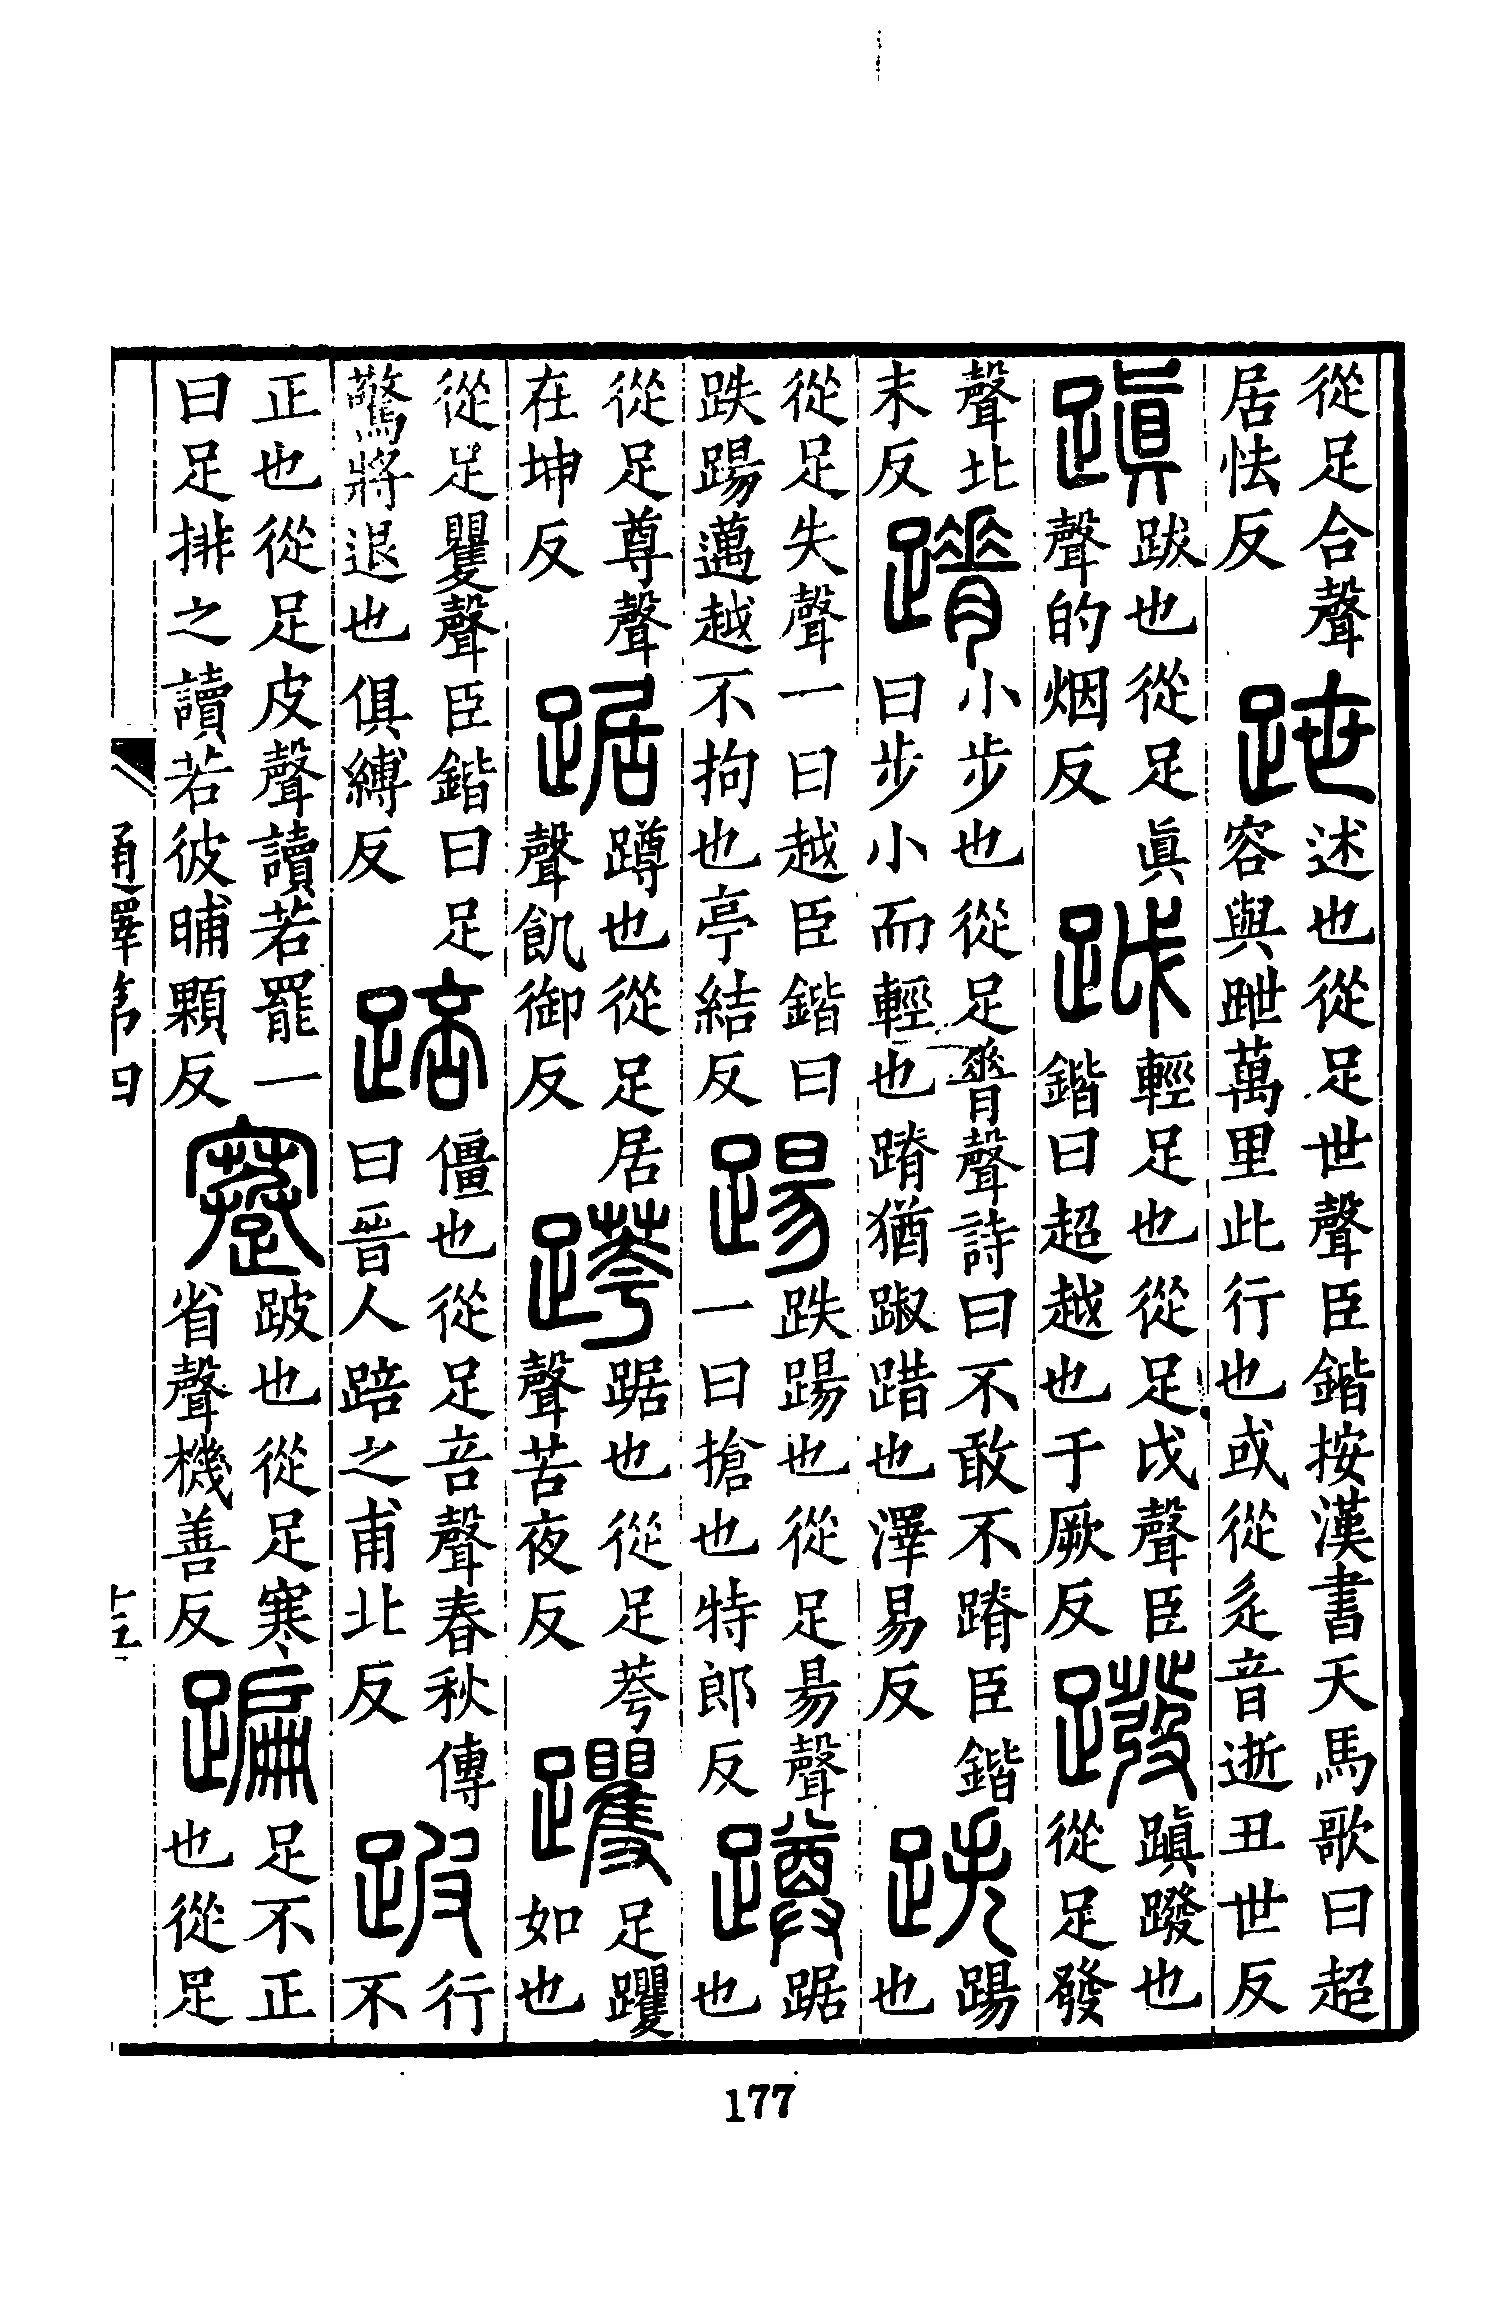 從足合聲居怯反
跇述也從足世聲臣鍇按漢書天馬歌曰超容與跇萬里此行也或從辵音逝丑世反
蹎跋也從足眞聲的烟反
𨁑輕足也從足戉聲臣鍇曰超越也于厥反
蹳蹎蹳也從足發
聲北末反
蹐小步也從足脊聲詩曰不敢不蹐臣鍇曰步小而輕也蹐猶踧踖也澤易反
跌踼也
從足失聲一曰越臣鍇曰跌踼邁越不拘也亭結反
踼跌踼也從足昜聲一曰搶也特郎反
蹲踞也
從足尊聲在坤反
踞蹲也從足居聲飢御反
䠸踞也從足荂聲苦夜反
躩足躩如也
從足矍聲臣鍇曰足驚將退也俱縛反
踣僵也從足咅聲春秋傳曰晉人踣之甫北反
跛行不
正也從足皮聲讀若罷一曰足排之讀若彼晡顆反
蹇跛也從足寒省聲機善反
蹁足不正也從足
通釋第四
177